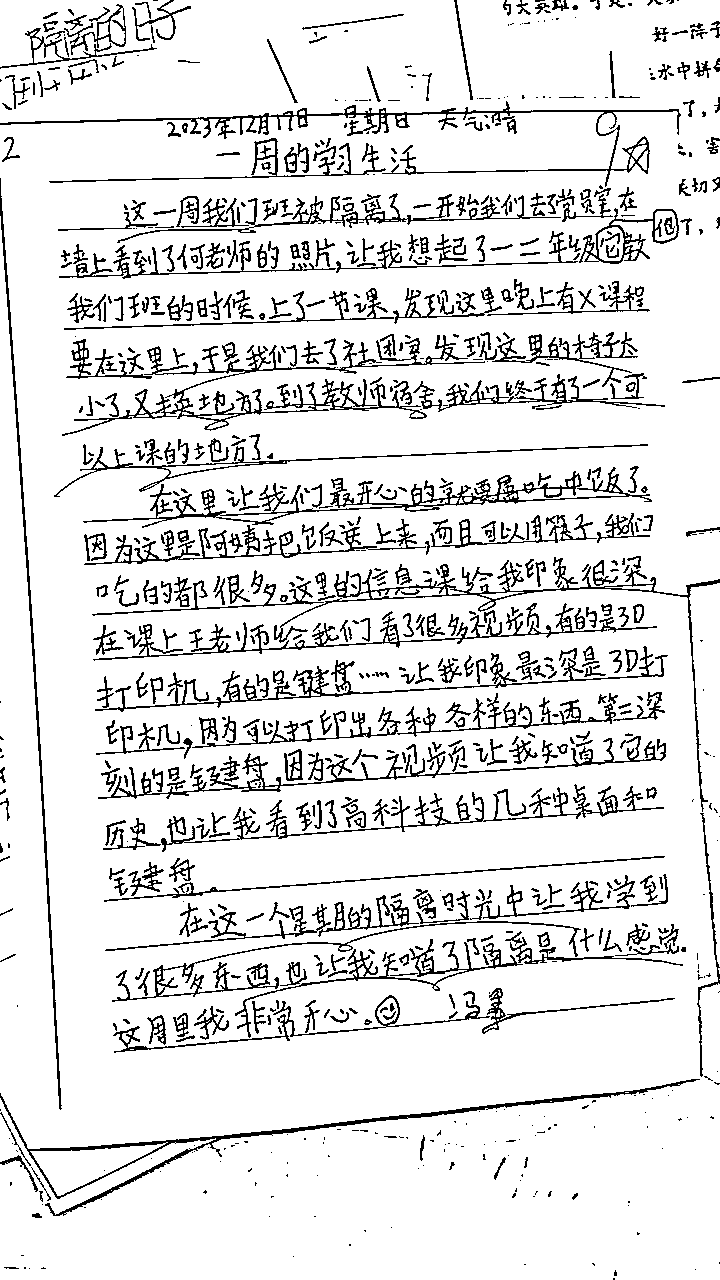 隔离的日子
2
2023年12月17日 星期日 天气:晴
一周的学习生活
9
这一周我们班被隔离了,一开始我们去了党员室,在
墙上看到了何老师的照片,让我想起了一二年级它教
他
我们班的时候。上了一节课,发现这里晚上有X课程
要在这里上,于是我们去了社团室。发现这里的椅子太
小了,又换地方了。到了教师宿舍,我们终于有了一个可
以上课的地方了。
在这里让我们最开心的就要属吃中饭了。
因为这里是阿姨把饭送上来,而且可以用筷子,我们
吃的都很多。这里的信息课给我印象很深,
在课上王老师给我们看了很多视频,有的是3D
打印机,有的是键盘……让我印象最深是3D打
印机,因为可以打印出各种各样的东西。第二深
刻的是键盘,因为这个视频让我知道了它的
历史,也让我看到了高科技的几种桌面和
键盘。
在这一个星期的隔离时光中让我学到
了很多东西,也让我知道了隔离是什么感觉.
这周里我非常开心。
好一阵子
水中拼命